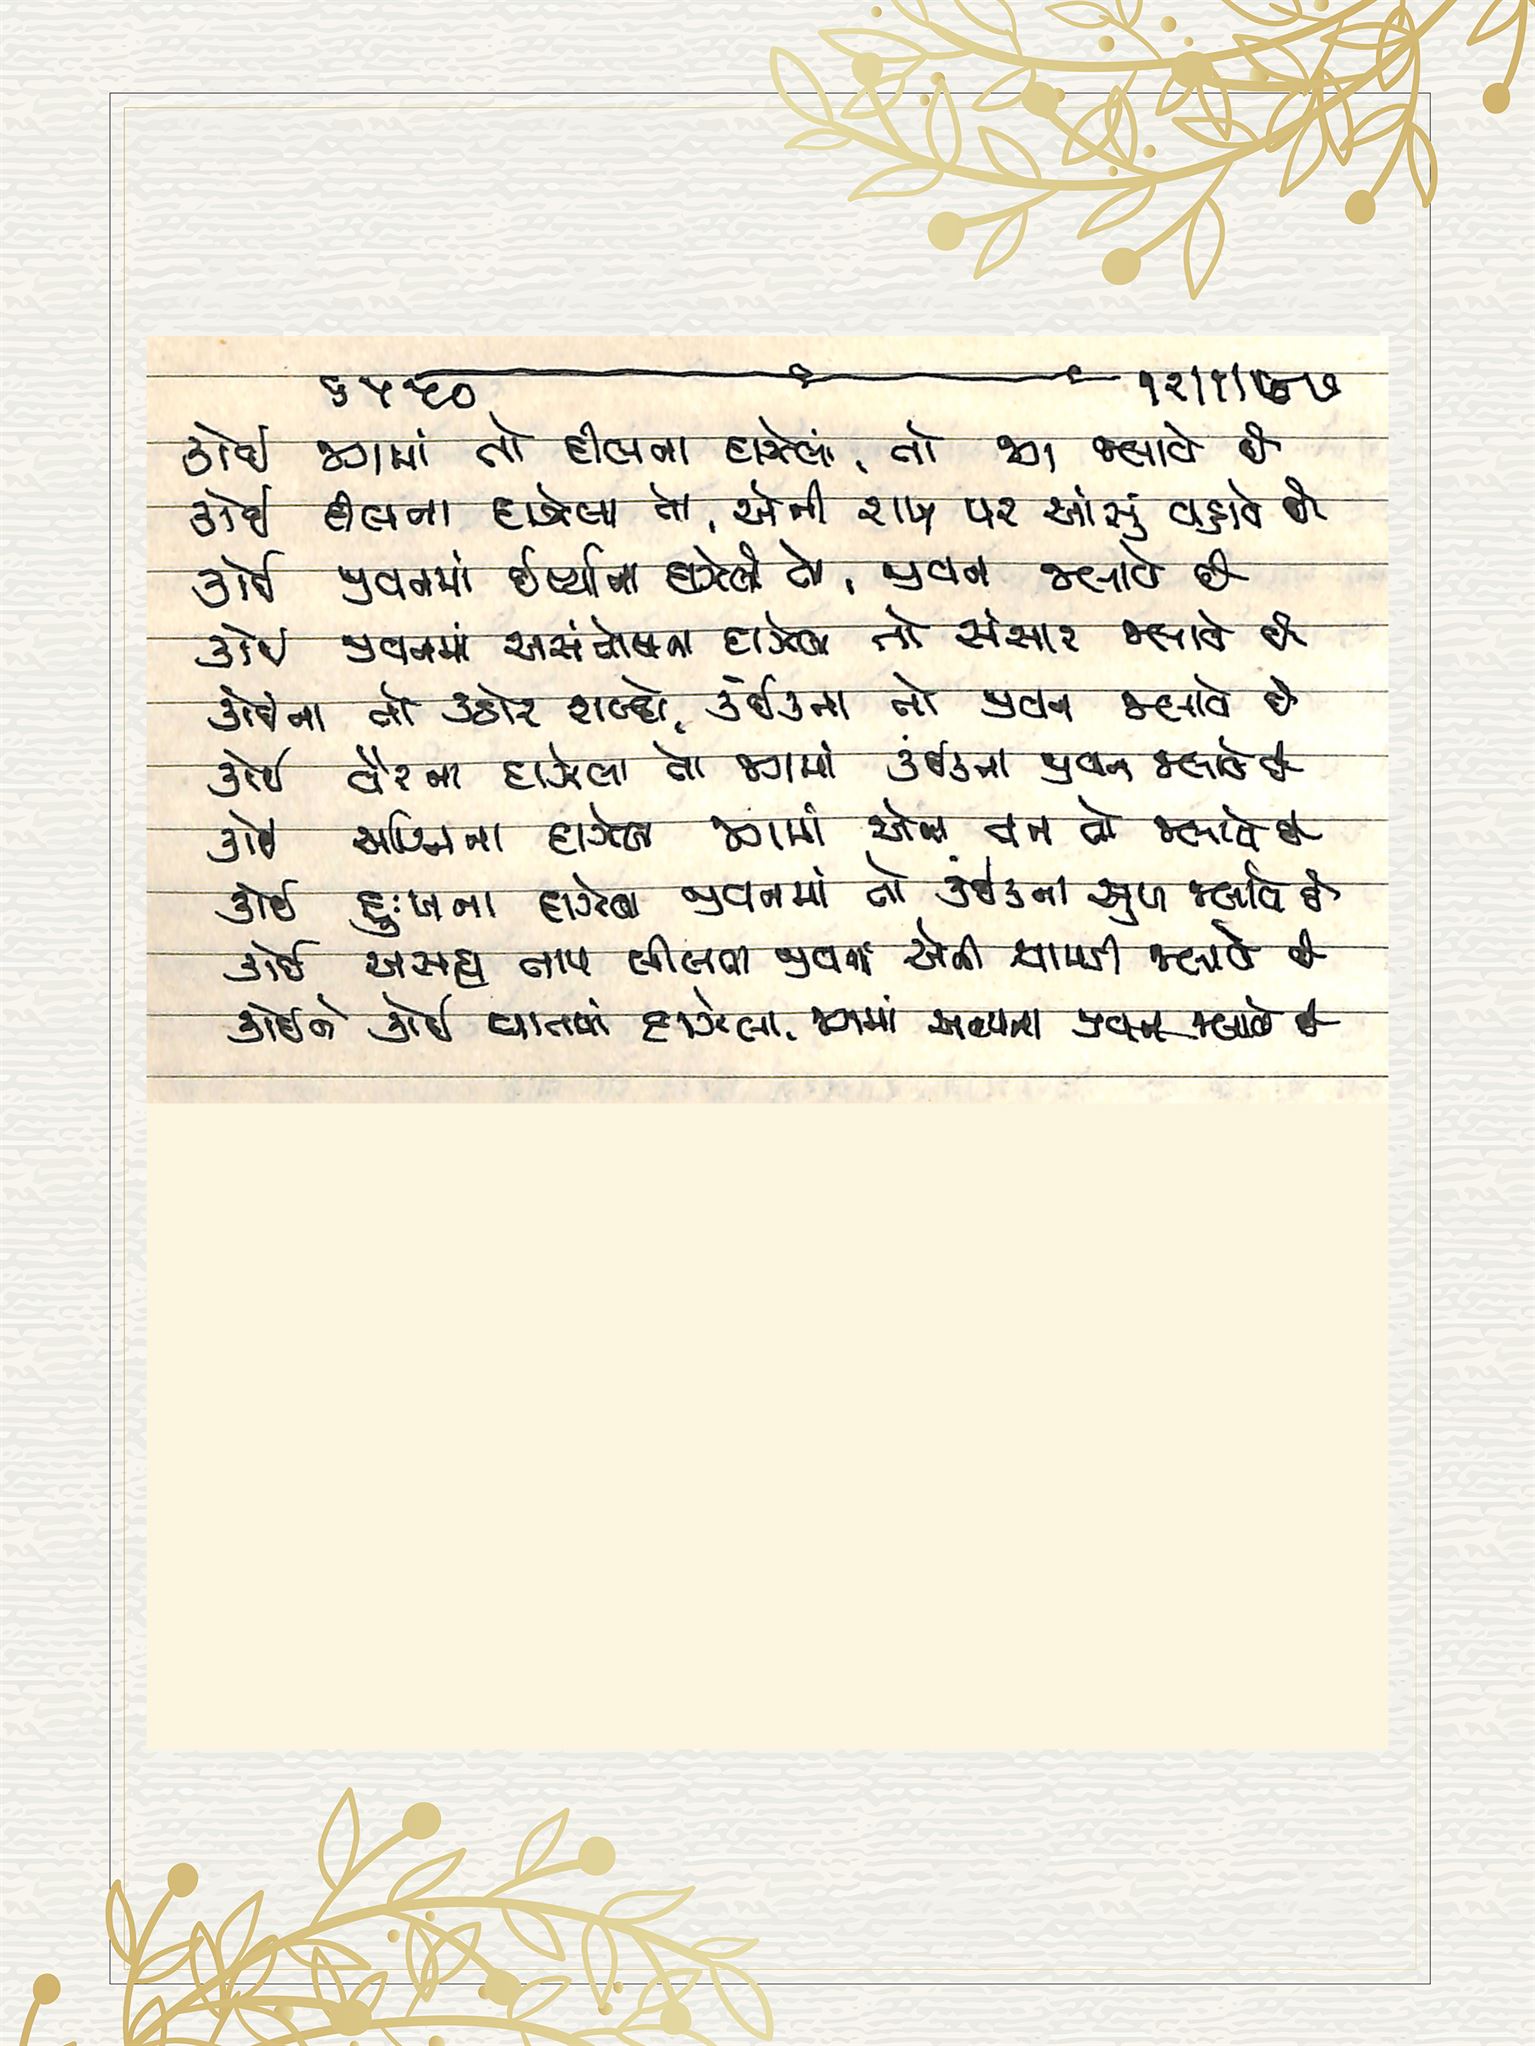 ૬૫૬૦ ૧૨/૧/૧૯૭
કોઈ જગમાં તો દીલના દાઝેલાં, તો જગ જલાવે છે
કોઈ દીલના દાઝેલા તો, એની રાખ પર આંસું વહાવે છે
કોઈ જીવનમાં ઈર્ષ્યાના દાઝેલા તો, જીવન જલાવે છે
કોઈ જીવનમાં અસંતોષના દાઝેલા તો સંસાર જલાવે છે
કોઈના તો કઠોર શબ્દો, કંઈકના તો જીવન જલાવે છે
કોઈ વૈરના દાઝેલા તો જગમાં કંઈકના જીવન જલાવે છે
કોઈ અગ્નિના દાઝેલા જગમાં એના તન તો જલાવે છે
કોઈ દુઃખના દાઝેલા જીવનમાં તો કંઈકના સુખ જલાવે છે
કોઈ અસહ્ય તાપ ઝીલતા જીવનમાં એની ચામડી જલાવે છે
કોઈને કોઈ વાતમાં દાઝેલા, જગમાં અન્યના જીવન જલાવે છે